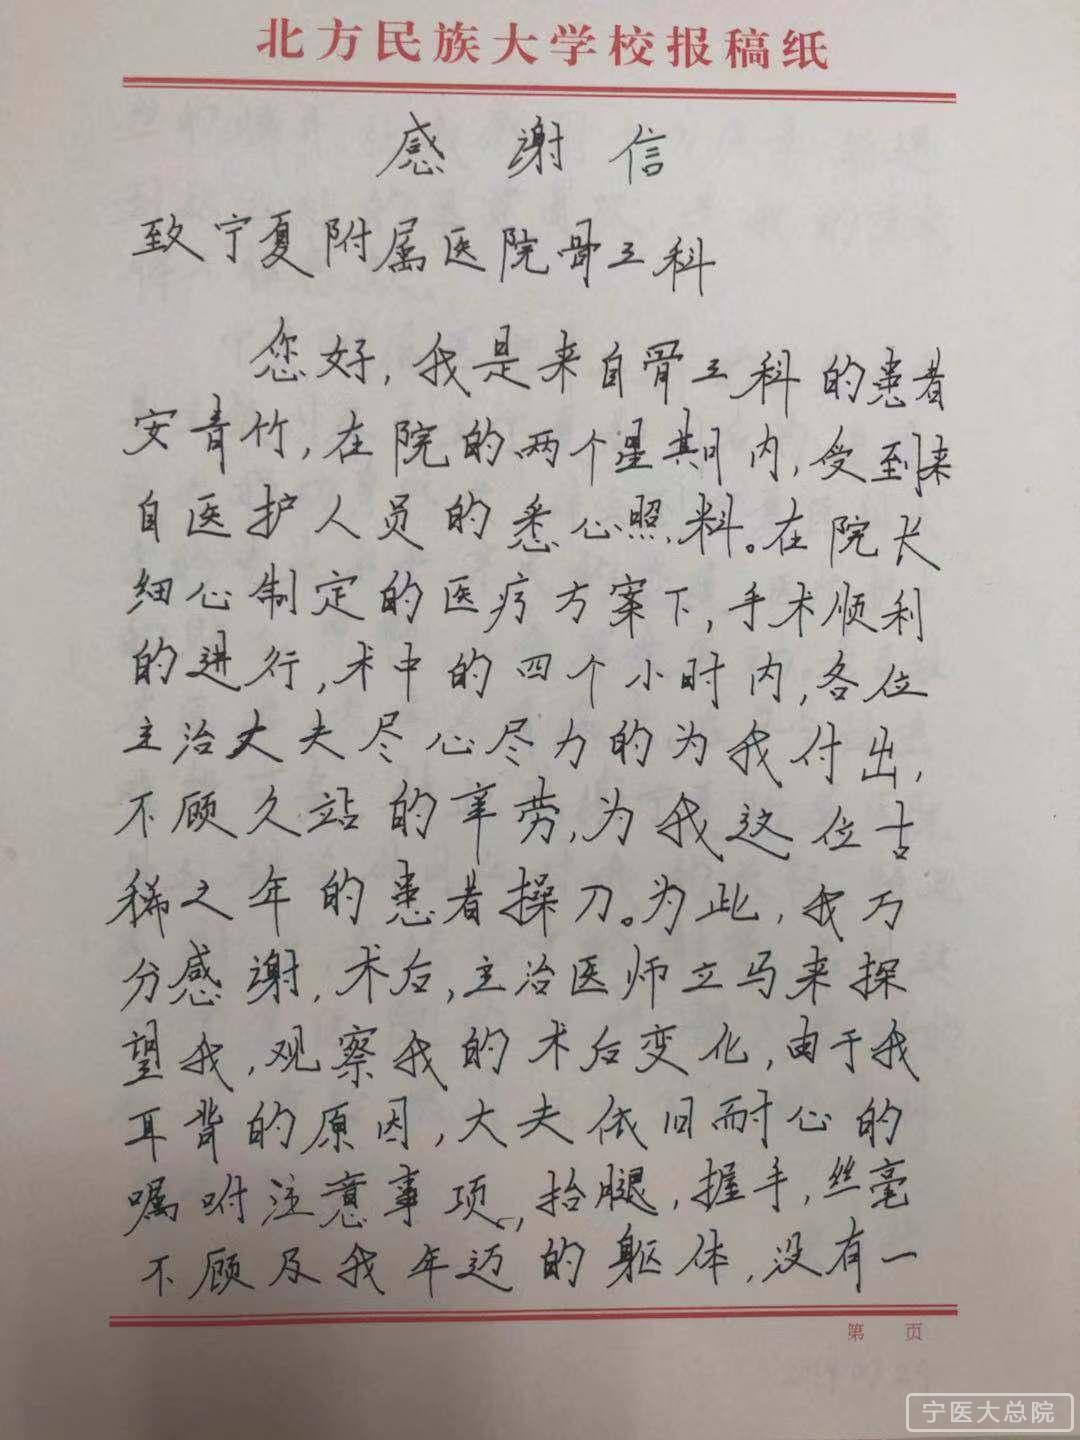 北方民族大学校报稿纸
感谢信
致宁夏附属医院骨三科
您好,我是来自骨三科的患者
安青竹,在院的两个星期内,受到来
自医护人员的悉心照料。在院长
细心制定的医疗方案下,手术顺利
的进行,术中的四个小时内,各位
主治大夫尽心尽力的为我付出,
不顾久站的辛劳,为我这位古
稀之年的患者操刀。为此,我万
分感谢,术后,主治医师立马来探
望我,观察我的术后变化,由于我
耳背的原因,大夫依旧耐心的
嘱咐注意事项,抬腿,握手,丝毫
不顾及我年迈的躯体,没有一
第 页
宁医大总院